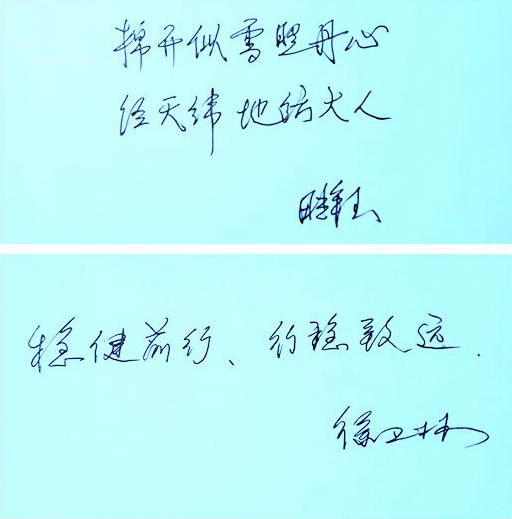 棉开似雪照丹心
经天纬地纺大人
稳健前行、行稳致远.
徐卫林